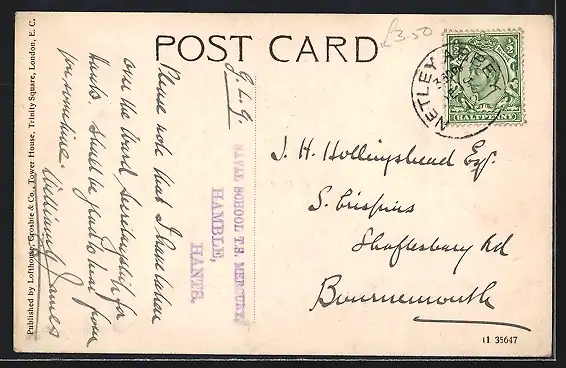 POST CARD
£3-50
G. L. G.
NAVAL SCHOOL T.S. MERCURY,
HAMBLE,
HANTS.
Please note that I have taken
over the local secretaryship for
Hants. Shall be glad to hear from
you sometime.
William James
NETLEY ABBEY
HALFPENNY
J. H. Hollingshead Esq.
S. Crispins
Shaftesbury Rd
Bournemouth
Published by Lofthouse, Crosbie & Co., Tower House, Trinity Square, London, E. C.
11 35647